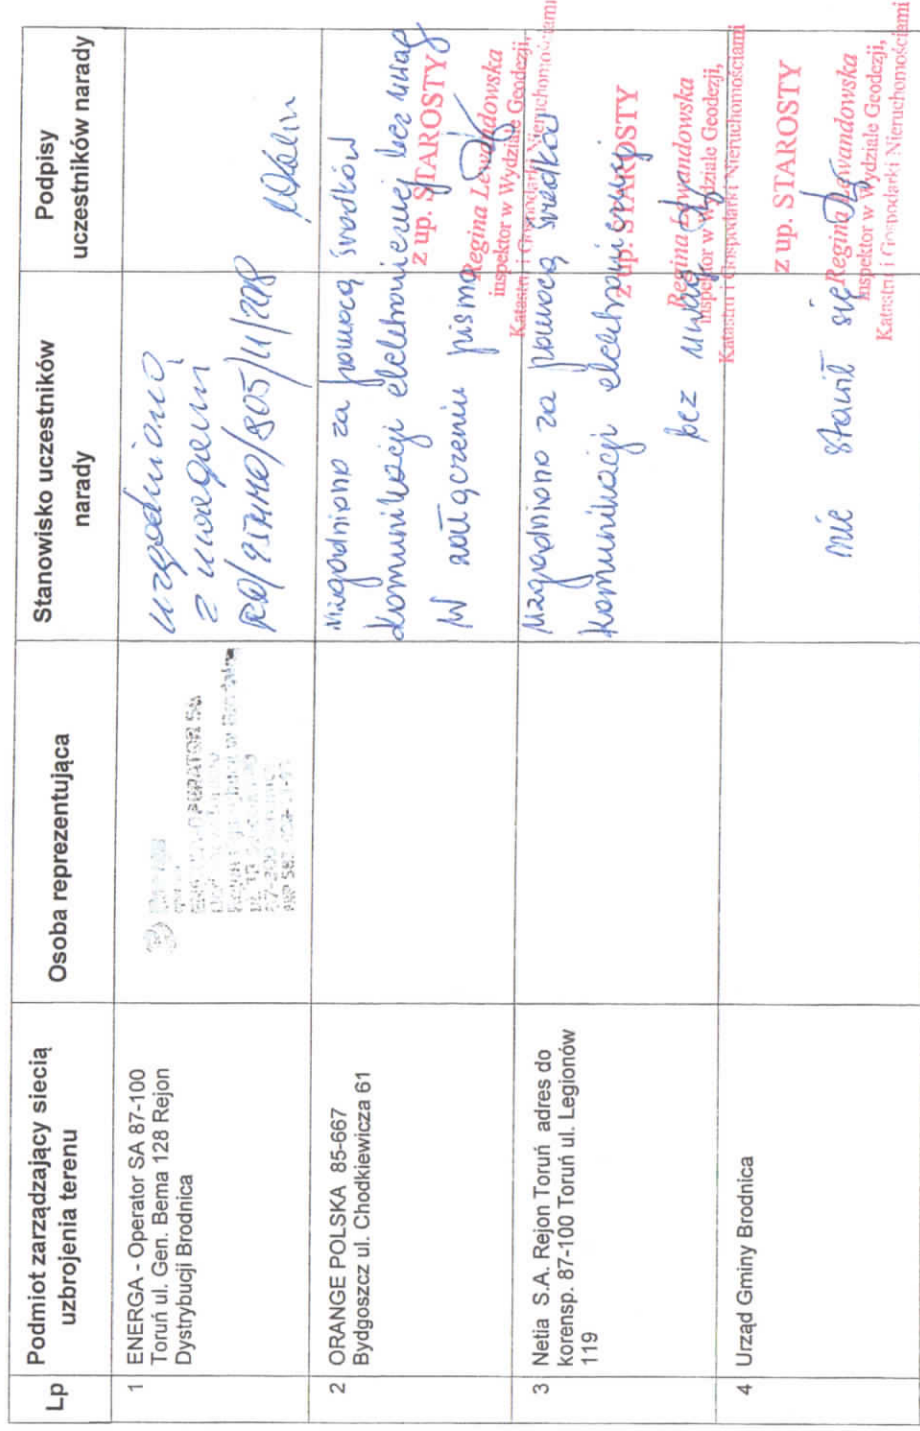 Lp
Podmiot zarządzający siecią
uzbrojenia terenu
Osoba reprezentująca
Stanowisko uczestników
narady
Podpisy
uczestników narady
1
ENERGA - Operator SA 87-100
Toruń ul. Gen. Bema 128 Rejon
Dystrybucji Brodnica
OPERATOR SA
uzgodniono
z uwagami
2
ORANGE POLSKA 85-667
Bydgoszcz ul. Chodkiewicza 61
uzgodniono za pomocą środków
komunikacji elektronicznej bez uwag
w załączeniu pismo
z up. STAROSTY
Regina Lewandowska
inspektor w Wydziale Geodezji,
Katastru i Gospodarki Nieruchomościami
3
Netia S.A. Rejon Toruń adres do
korensp. 87-100 Toruń ul. Legionów
119
uzgodniono za pomocą środków
komunikacji elektronicznej
bez uwag
z up. STAROSTY
Regina Lewandowska
inspektor w Wydziale Geodezji,
Katastru i Gospodarki Nieruchomościami
4
Urząd Gminy Brodnica
nie stawił się
z up. STAROSTY
Regina Lewandowska
inspektor w Wydziale Geodezji,
Katastru i Gospodarki Nieruchomościami